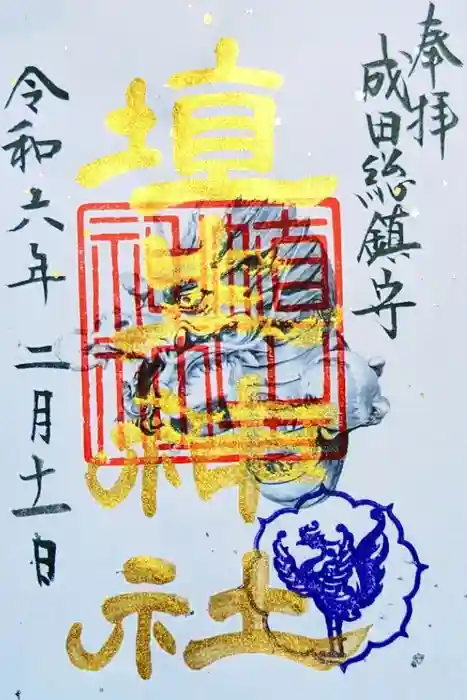 奉拝
成田総鎮守
埴生神社
令和六年 二月十一日